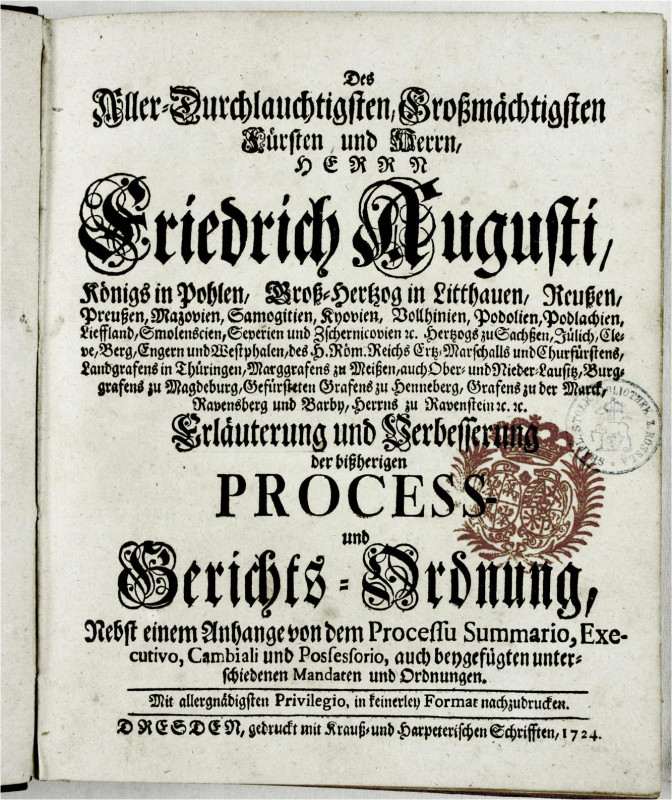 Des
Aller-Durchlauchtigsten, Großmächtigsten
Fürsten und Herrn,
HERRN
Friedrich Augusti,
Königs in Pohlen, Groß-Hertzog in Litthauen, Reußen,
Preußen, Mazovien, Samogitien, Kyovien, Vollhinien, Podolien, Podlachien,
Lieffland, Smolenscien, Severien und Zschernicovien ꝛc. Hertzogs zu Sachßen, Jülich, Cle-
ve, Berg, Engern und Westphalen, des H. Röm. Reichs Ertz-Marschalls und Churfürstens,
Landgrafens in Thüringen, Marggrafens zu Meißen, auch Ober- und Nieder-Lausitz, Burg-
grafens zu Magdeburg, Gefürsteten Grafens zu Henneberg, Grafens zu der Marck,
Ravensberg und Barby, Herrns zu Ravenstein ꝛc. ꝛc.
Erläuterung und Verbesserung
der bißherigen
PROCESS-
und
Gerichts-Ordnung,
Nebst einem Anhange von dem Processu Summario, Exe-
cutivo, Cambiali und Possessorio, auch beygefügten unter-
schiedenen Mandaten und Ordnungen.
Mit allergnädigsten Privilegio, in keinerley Format nachzudrucken.
DRESDEN, gedruckt mit Krauß- und Harpeterischen Schrifften, 1724.